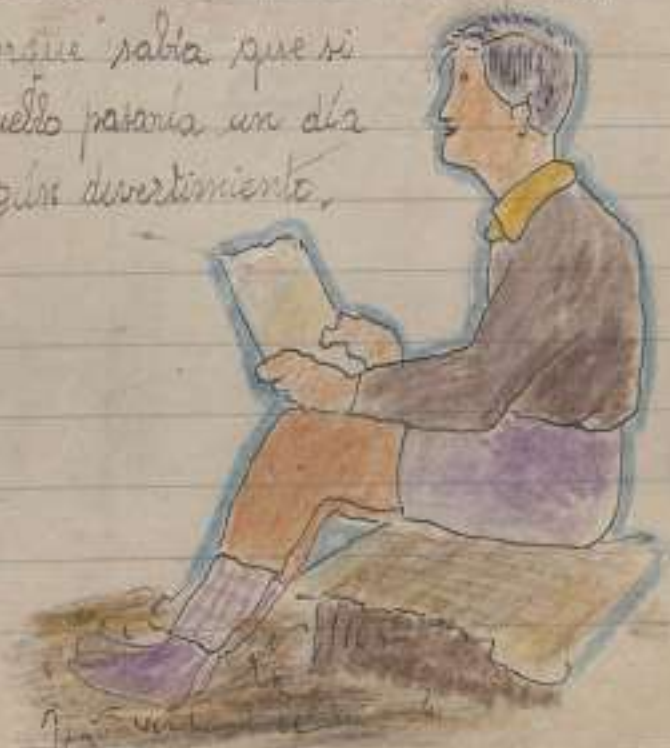 orque sabía que si
uello pasaría un día
gún divertimiento.